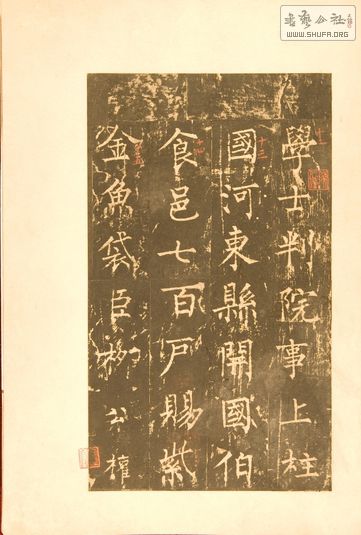 學士判院事上柱
國河東縣開國伯
食邑七百戶賜紫
金魚袋臣柳公權
十二
十三
十四
十五
書藝公社
WWW.SHUFA.ORG